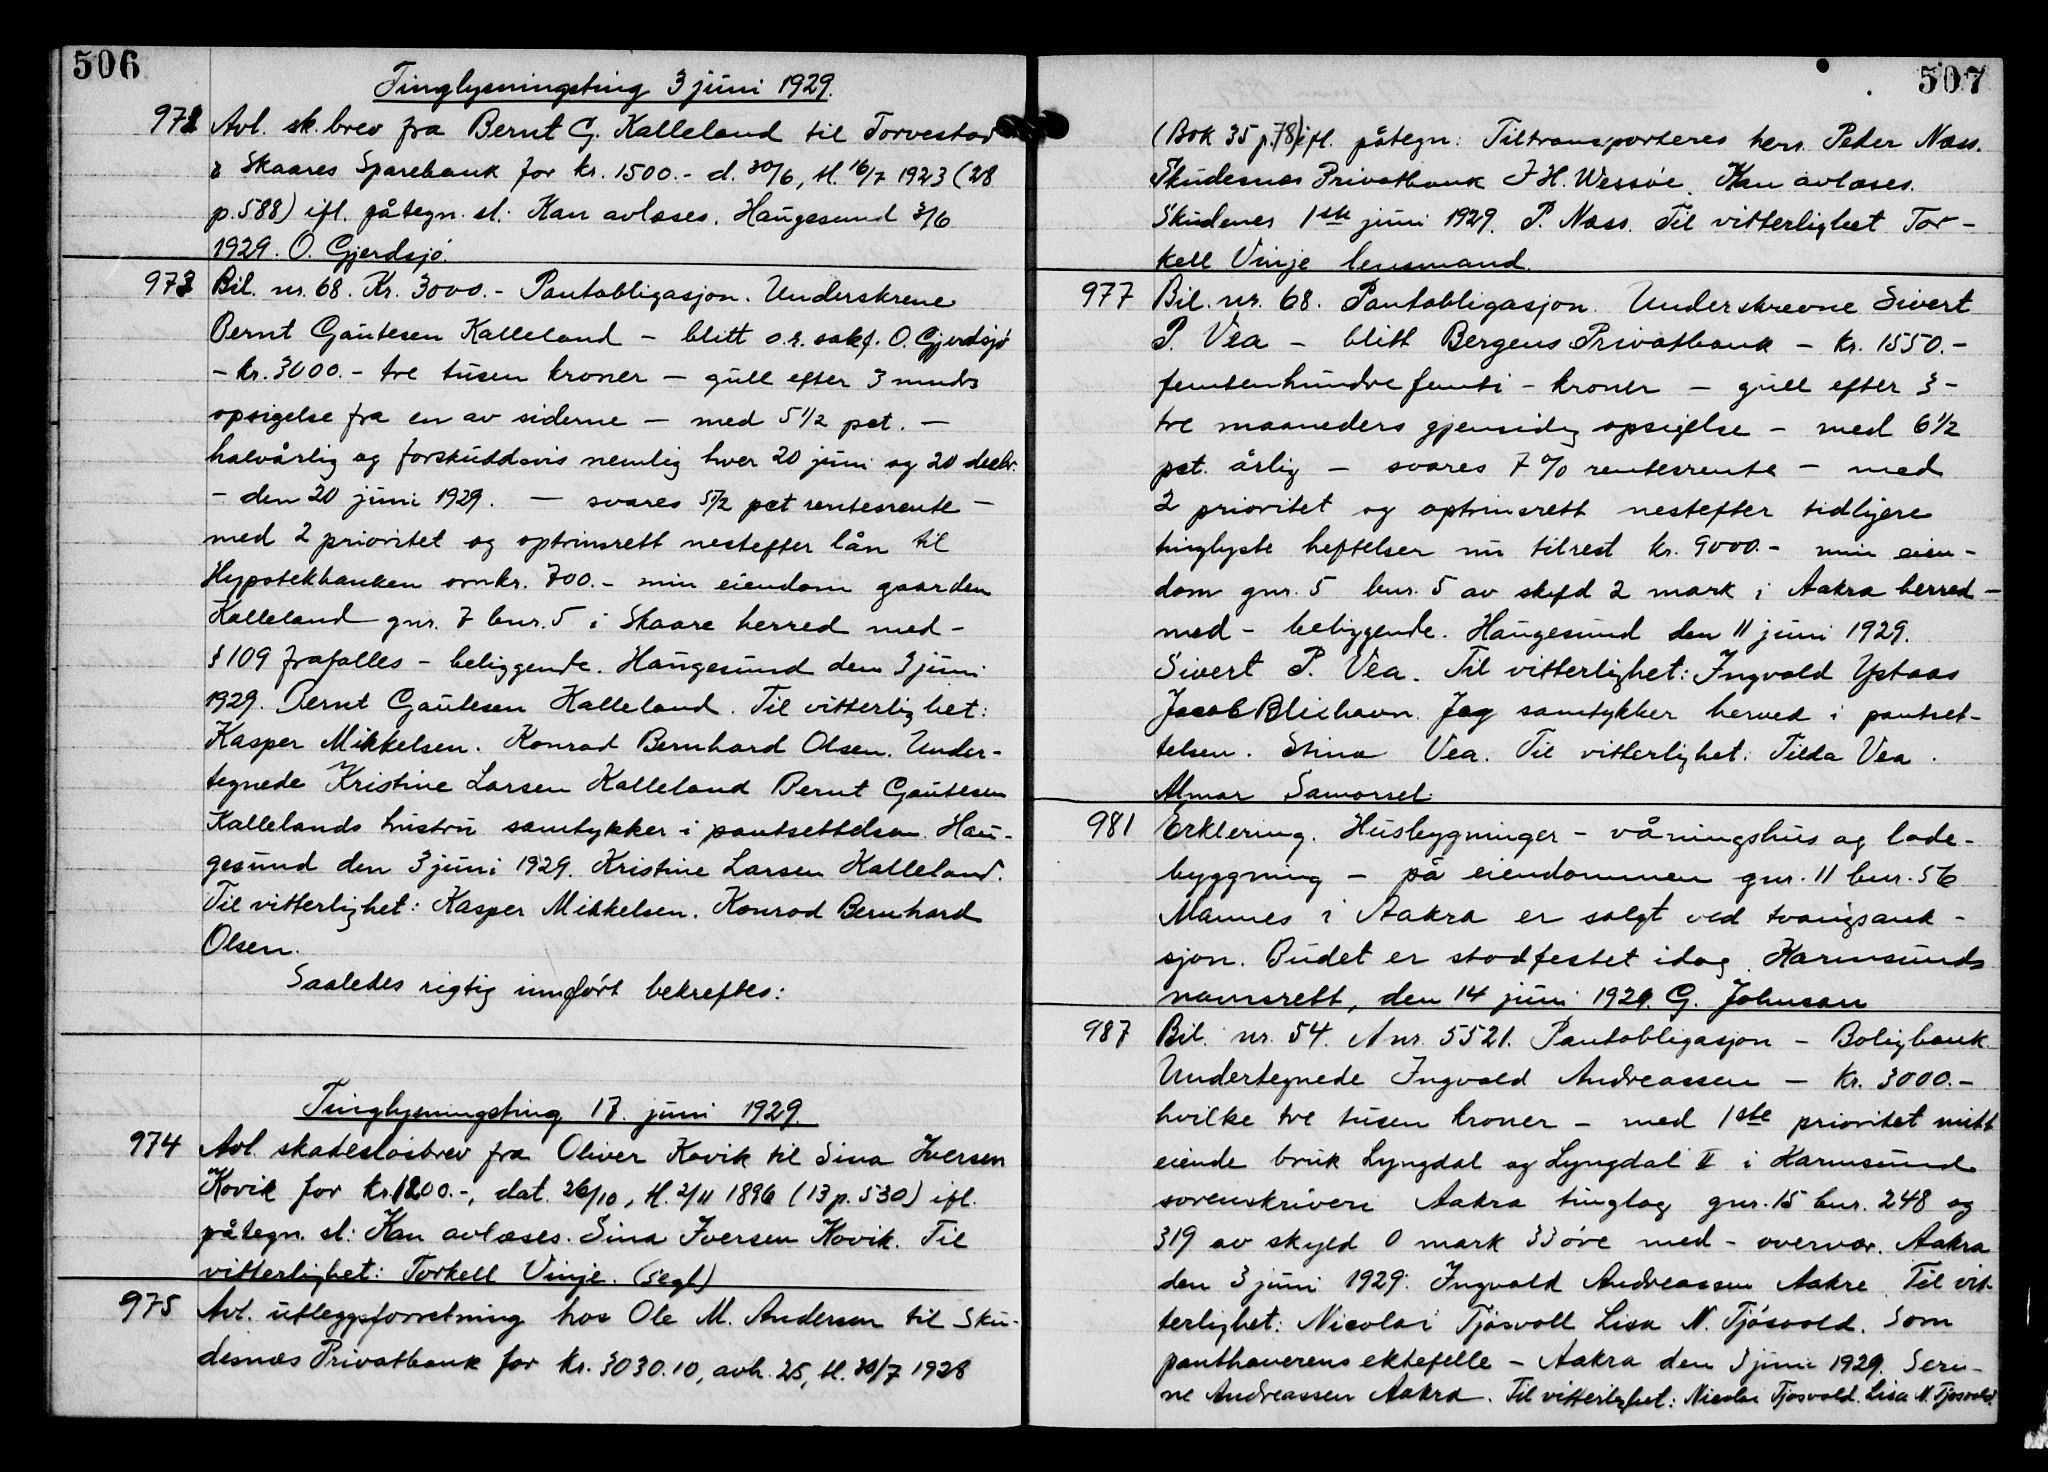 506
Tinglysningsting 3 juni 1929.
972 Avl. sk. brev fra Bernt G. Kalleland til Torvestad
& Skaares Sparebank for kr. 1500.- d. 30/6, tl. 16/7 1923 (28
p. 588) ifl. påtegn. sl: Kan avlæses. Haugesund 3/6
1929. O. Gjerdsjö.
973 Bil. nr. 68. Kr. 3000.- Pantobligasjon. Underskrene
Bernt Gautesen Kalleland - blitt o.r. sakf. O. Gjerdsjö
- kr. 3000.- tre tusen kroner - gull efter 3 mndrs
opsigelse fra en av siderne - med 5 1/2 pct. -
halvårlig og forskuddsvis nemlig hver 20 juni og 20 decbr.
- den 20 juni 1929. - svares 5 1/2 pct rentesrente -
med 2 prioritet og optrinsrett nestefter lån til
Hypotekbanken omkr. 700.- min eiendom gaarden
Kalleland gnr. 7 bnr. 5 i Skaare herred med -
§ 109 frafalles - beliggende. Haugesund den 3 juni
1929. Bernt Gautesen Kalleland. Til vitterlighet:
Kasper Mikkelsen. Konrad Bernhard Olsen. Under-
tegnede Kristine Larsen Kalleland Bernt Gautesen
Kallelands hustru samtykker i pantsettelsen. Hau-
gesund den 3 juni 1929. Kristine Larsen Kalleland.
Til vitterlighet: Kasper Mikkelsen. Konrad Bernhard
Olsen.
Saaledes rigtig innført bekreftes:
Tinglysningsting 17. juni 1929.
974 Avl. skadesløsbrev fra Oliver Kovik til Sina Iversen
Kovik for kr. 1200.-, dat. 26/10, tl. 2/11 1896 (13 p. 530) ifl.
påtegn. sl: Kan avlæses. Sina Iversen Kovik. Til
vitterlighet: Torkell Vinje. (segl)
975 Avl. utleggsforretning hos Ole M. Andersen til Sku-
desnæs Privatbank for kr. 3030.10, avh. 25, tl. 30/7 1928
507
(Bok 35 p. 78) ifl. påtegn: Tiltransporteres herr. Peder Næss.
Skudesnes Privatbank J H. Wersøe. Kan avlæses.
Skudenes 1ste juni 1929. P. Næss. Til vitterlighet Tor-
kell Vinje lensmand.
977 Bil. nr. 68. Pantobligasjon. Underskrevne Sivert
P. Vea - blitt Bergens Privatbank - kr. 1550.-
femtenhundre femti - kroner - gull efter 3 -
tre maaneders gjensidig opsigelse - med 6 1/2
pct. årlig - svares 7 % rentesrente - med
2 prioritet og optrinsrett nestefter tidligere
tinglyste heftelser nu tilrest kr. 9000.- min eien-
dom gnr. 5 bnr. 5 av skyld 2 mark i Aakra herred -
med - beliggende. Haugesund den 11 juni 1929.
Sivert P. Vea. Til vitterlighet: Ingvald Ystaas
Jacob Blixhavn. Jeg samtykker herved i pantset-
telsen. Stina Vea. Til vitterlighet: Tilda Vea.
Almar Samorsel.
981 Erklering. Husbygninger - våningshus og lade-
byggning - på eiendommen gnr. 11 bnr. 56
Mannes i Aakra er solgt ved tvangsauk-
sjon. Budet er stadfestet idag. Karmsunds
namsrett, den 14 juni 1929. G. Johnsen
987 Bil. nr. 54. A nr. 5521. Pantobligasjon - Boligbank.
Undertegnede Ingvald Andreassen - kr. 3000.-
hvilke tre tusen kroner - med 1ste prioritet mitt
eiende bruk Lyngdal og Lyngdal II i Karmsund
sorenskriveri Aakra tinglag gnr. 15 bnr. 248 og
319 av skyld 0 mark 33 öre med - overvær. Aakra
den 3 juni 1929. Ingvald Andreassen Aakre. Til vit-
terlighet: Nicolai Tjösvoll Lisa N. Tjösvold. Som
panthaverens ektefelle - Aakra den 3 juni 1929. Seri-
ne Andreassen Aakra. Til vitterlighet: Nicolai Tjøsvold. Lisa N. Tjøsvold.